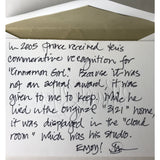 In 2005 Prince received this
commerative recognition for
"Cinnamon Girl". Because it was
not an actual award, it was
given to me to keep. While he
lived in the original "3121" home,
it was displayed in the "cloud
room" which was his studio.
Enjoy!